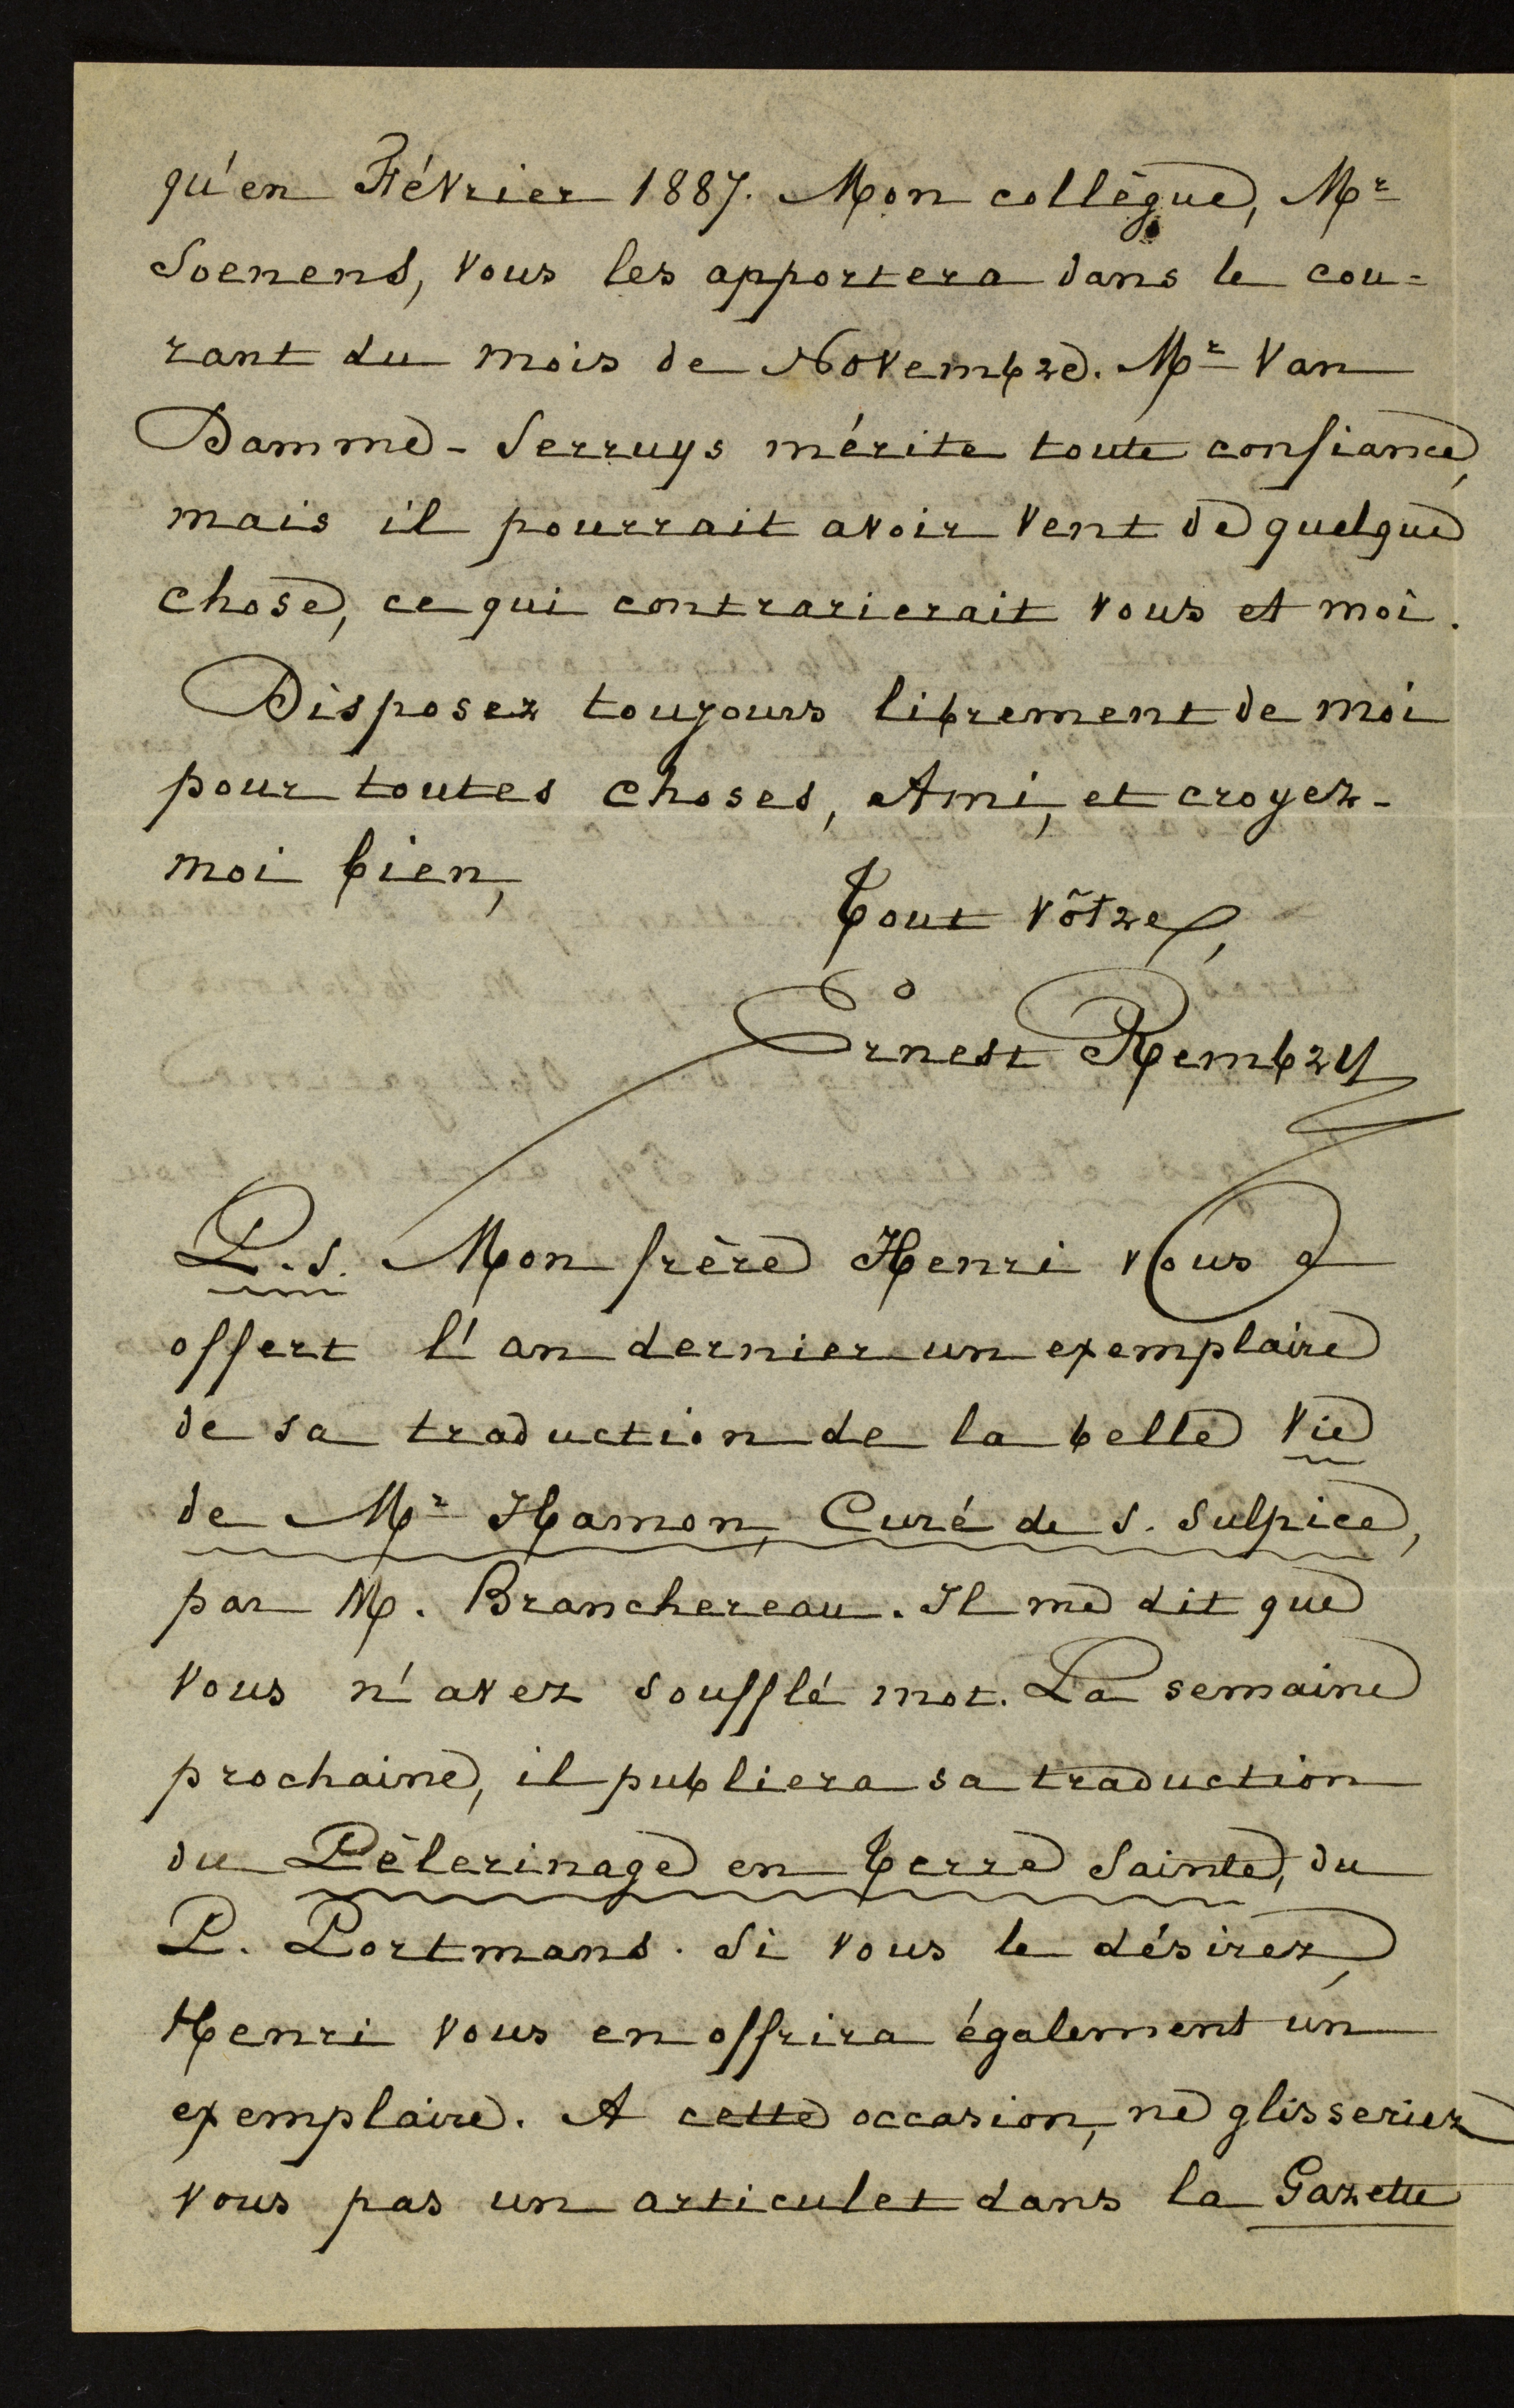 qu'en Février 1887. Mon collègue, Mr
Soenens, vous les apportera dans le cou=
rant du mois de Novembre. Mr Van
Damme-Serruys mérite toute confiance,
mais il pourrait avoir vent de quelque
chose, ce qui contrarierait vous et moi.
Disposez toujours librement de moi
pour toutes choses, Ami, et croyez-
moi bien,
Tout vôtre,
Ernest Rembry
P.S. Mon frère Henri vous a
offert l'an dernier un exemplaire
de sa traduction de la belle Vie
de Mr Hamon, Curé de S. Sulpice,
par M. Branchereau. Il me dit que
vous n'avez soufflé mot. La semaine
prochaine, il publiera sa traduction
du Pèlerinage en Terre Sainte, du
P. Portmans. Si vous le désirez,
Henri vous en offrira également un
exemplaire. A cette occasion, ne glisseriez
vous pas un articulet dans la Gazette